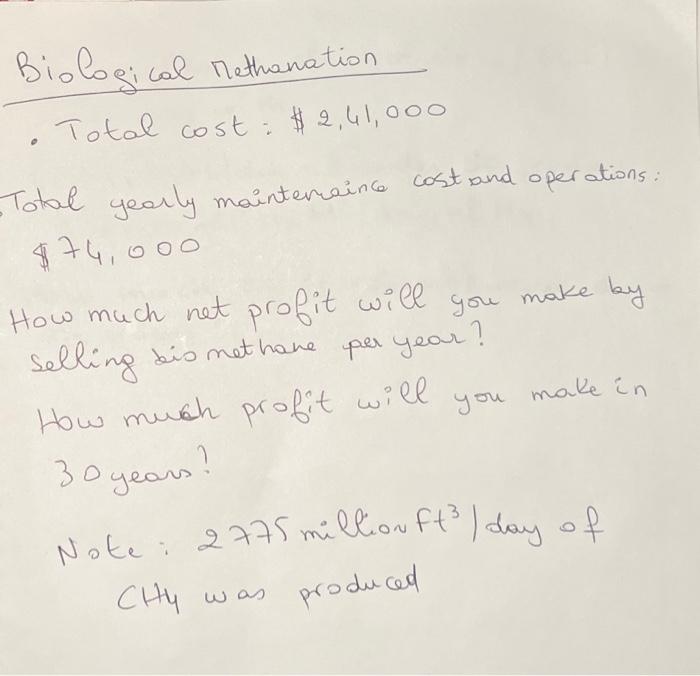 Biological Methanation
. Total cost : $ 2,41,000
. Total yearly maintenaince cost and operations :
$ 74,000
How much net profit will you make by
selling biomethane per year?
How much profit will you make in
30 years?
Note : 2775 million ft³ / day of
CH4 was produced